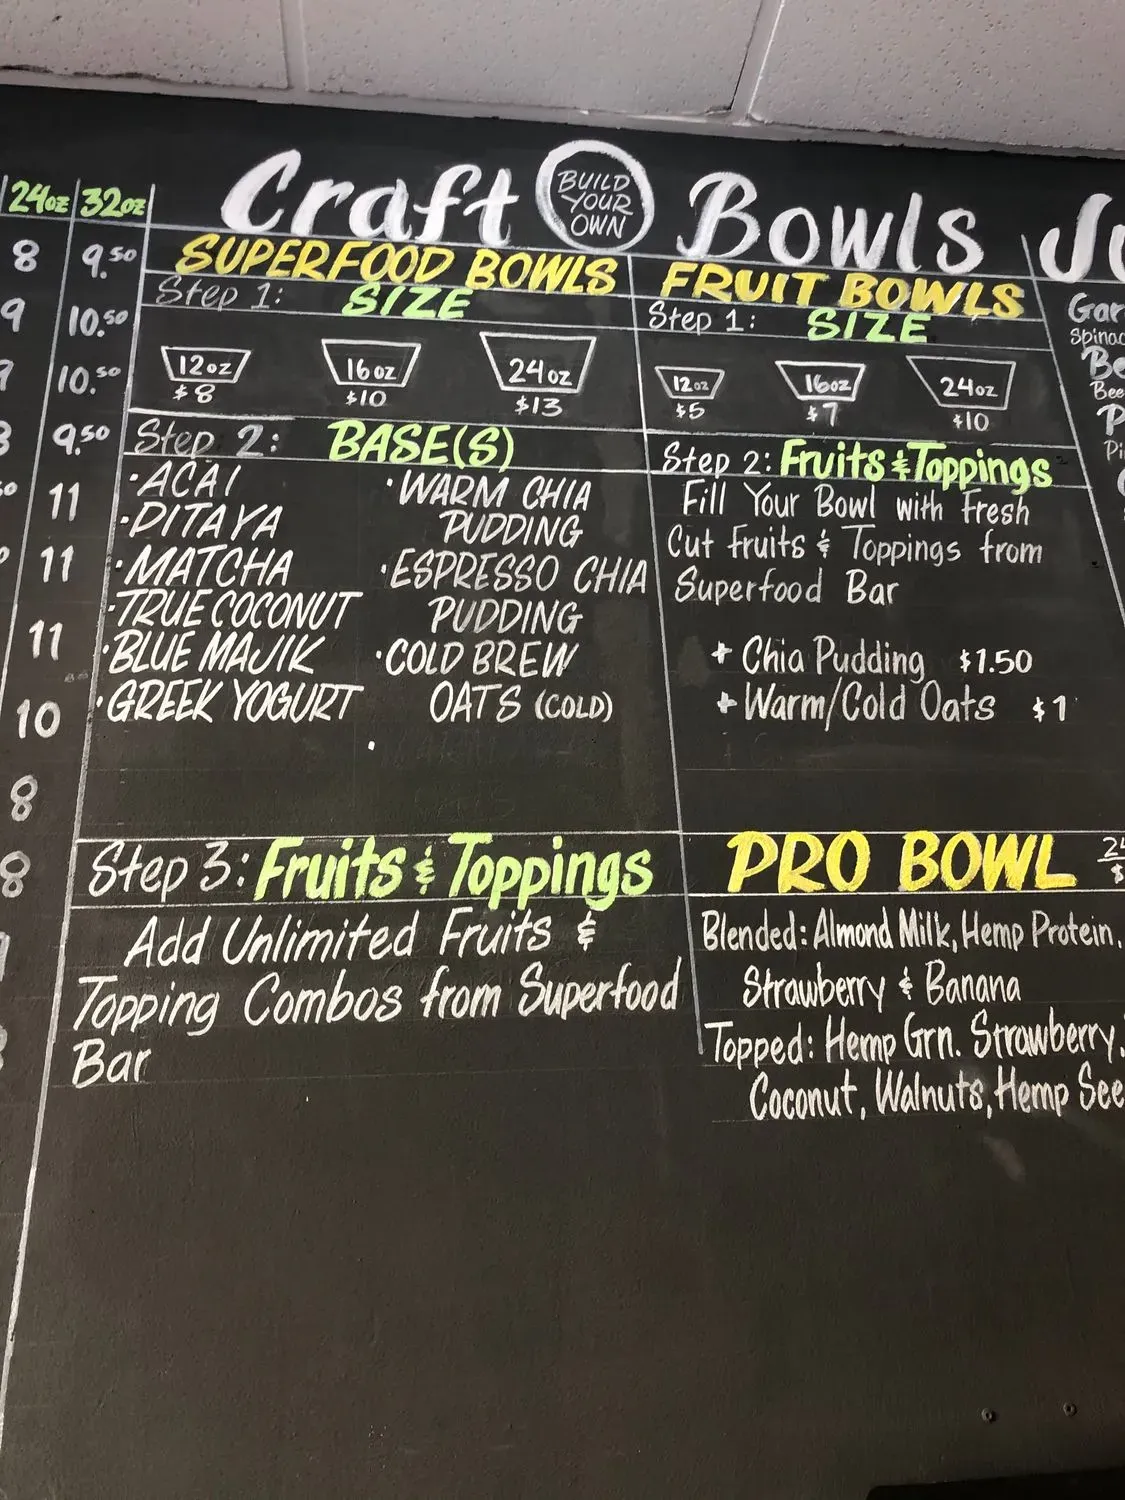 24oz 32oz
8 9.50
9 10.50
10.50
9.50
11
11
11
10
8
8
Craft BUILD YOUR OWN Bowls
SUPERFOOD BOWLS
Step 1: SIZE
12oz 16oz 24oz
$8 $10 $13
Step 2: BASE(S)
·ACAI
·PITAYA
·MATCHA
·TRUE COCONUT
·BLUE MAJIK
·GREEK YOGURT
·WARM CHIA
PUDDING
·ESPRESSO CHIA
PUDDING
·COLD BREW
OATS (COLD)
Step 3: Fruits & Toppings
Add Unlimited Fruits &
Topping Combos from Superfood
Bar
FRUIT BOWLS
Step 1: SIZE
12oz 16oz 24oz
$5 $7 $10
Step 2: Fruits & Toppings
Fill Your Bowl with Fresh
Cut Fruits & Toppings from
Superfood Bar
+ Chia Pudding $1.50
+ Warm/Cold Oats $1
PRO BOWL
Blended: Almond Milk, Hemp Protein,
Strawberry & Banana
Topped: Hemp Grn. Strawberry,
Coconut, Walnuts, Hemp See
Gar
Spinac
Be
Bee
P
Pi